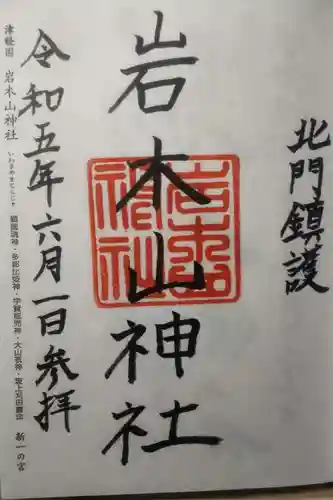 北門鎮護
岩木山神社
岩木山神社
令和五年六月一日参拝
津軽国 岩木山神社 いわきやまじんじゃ 顕國魂神・多都比姫神・宇賀能売神・大山祇神・坂上刈田麿命 新一の宮